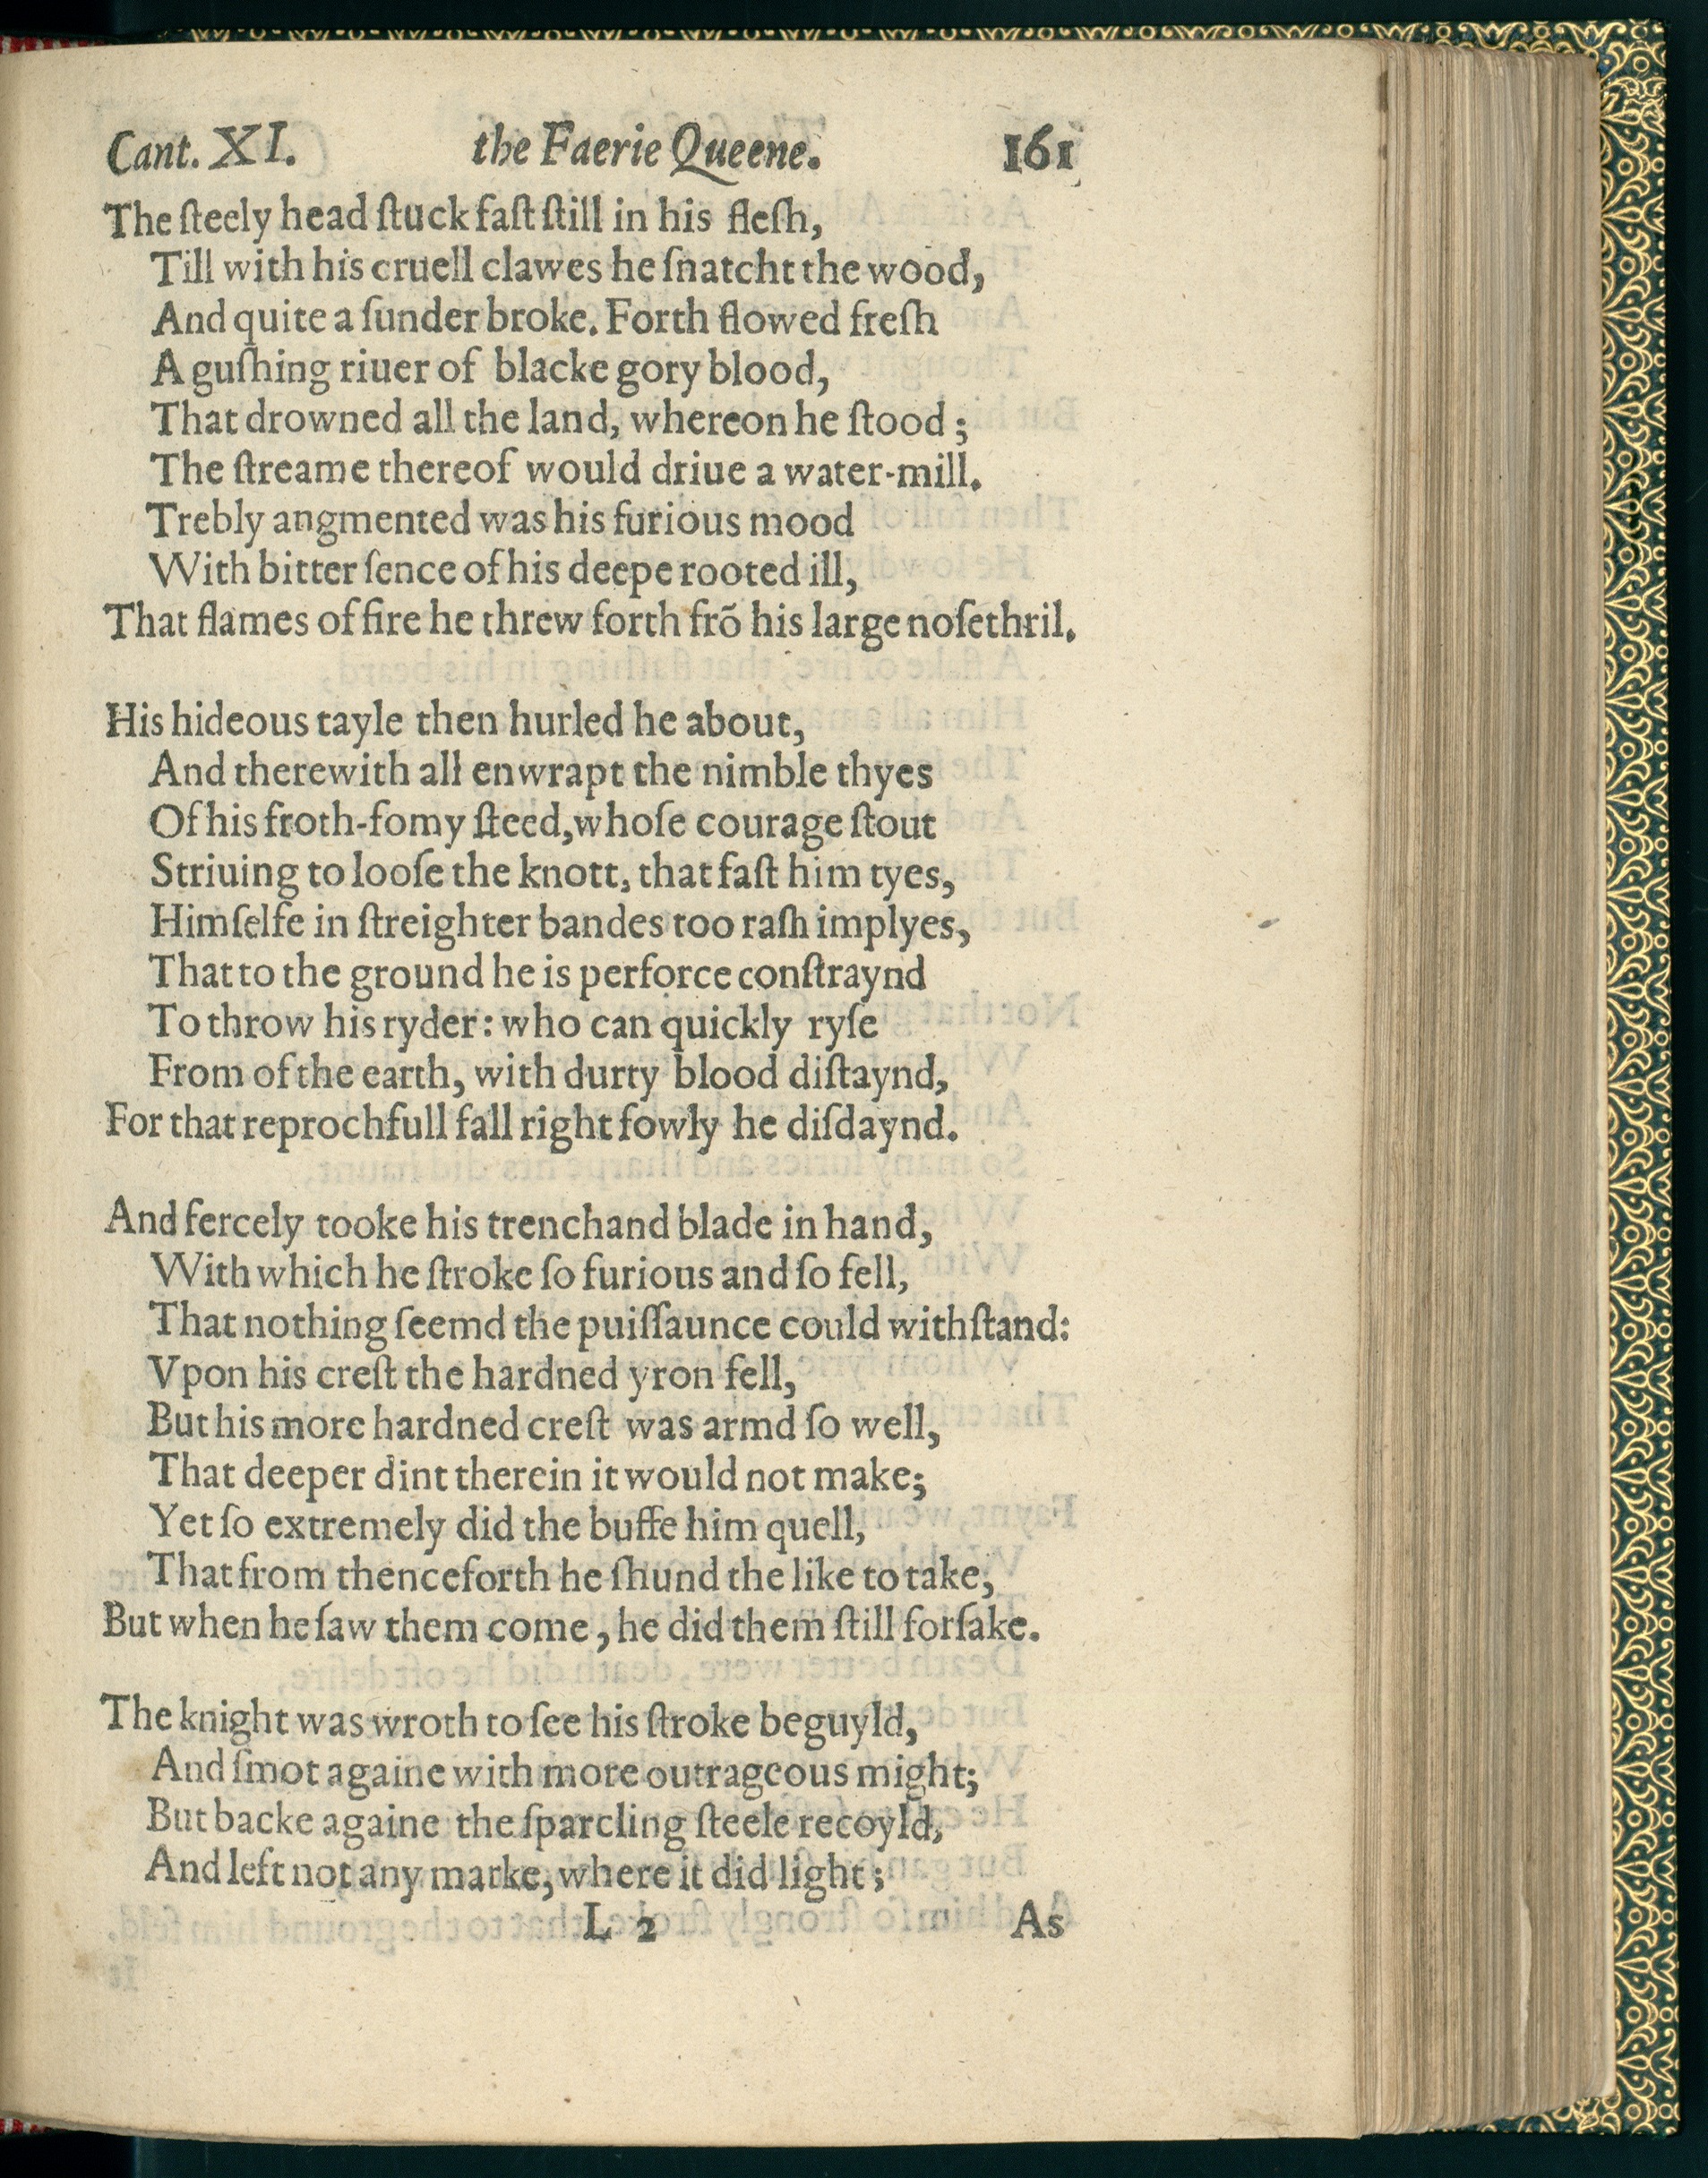 Cant. XI. the Faerie Queene. 161
The ſteely head ſtuck faſt ſtill in his fleſh,
Till with his cruell clawes he ſnatcht the wood,
And quite a ſunder broke. Forth flowed freſh
A guſhing riuer of blacke gory blood,
That drowned all the land, whereon he ſtood;
The ſtreame thereof would driue a water-mill.
Trebly angmented was his furious mood
With bitter ſence of his deepe rooted ill,
That flames of fire he threw forth frõ his large noſethril.
His hideous tayle then hurled he about,
And therewith all enwrapt the nimble thyes
Of his froth-fomy ſteed, whoſe courage ſtout
Striuing to looſe the knott, that faſt him tyes,
Himſelfe in ſtreighter bandes too raſh implyes,
That to the ground he is perforce conſtraynd
To throw his ryder: who can quickly ryſe
From of the earth, with durty blood diſtaynd,
For that reprochfull fall right fowly he diſdaynd.
And fercely tooke his trenchand blade in hand,
With which he ſtroke ſo furious and ſo fell,
That nothing ſeemd the puiſſaunce could withſtand:
Vpon his creſt the hardned yron fell,
But his more hardned creſt was armd ſo well,
That deeper dint therein it would not make;
Yet ſo extremely did the buffe him quell,
That from thenceforth he ſhund the like to take,
But when he ſaw them come, he did them ſtill forſake.
The knight was wroth to ſee his ſtroke beguyld,
And ſmot againe with more outrageous might;
But backe againe the ſparcling ſteele recoyld,
And left not any marke, where it did light;
L 2 As